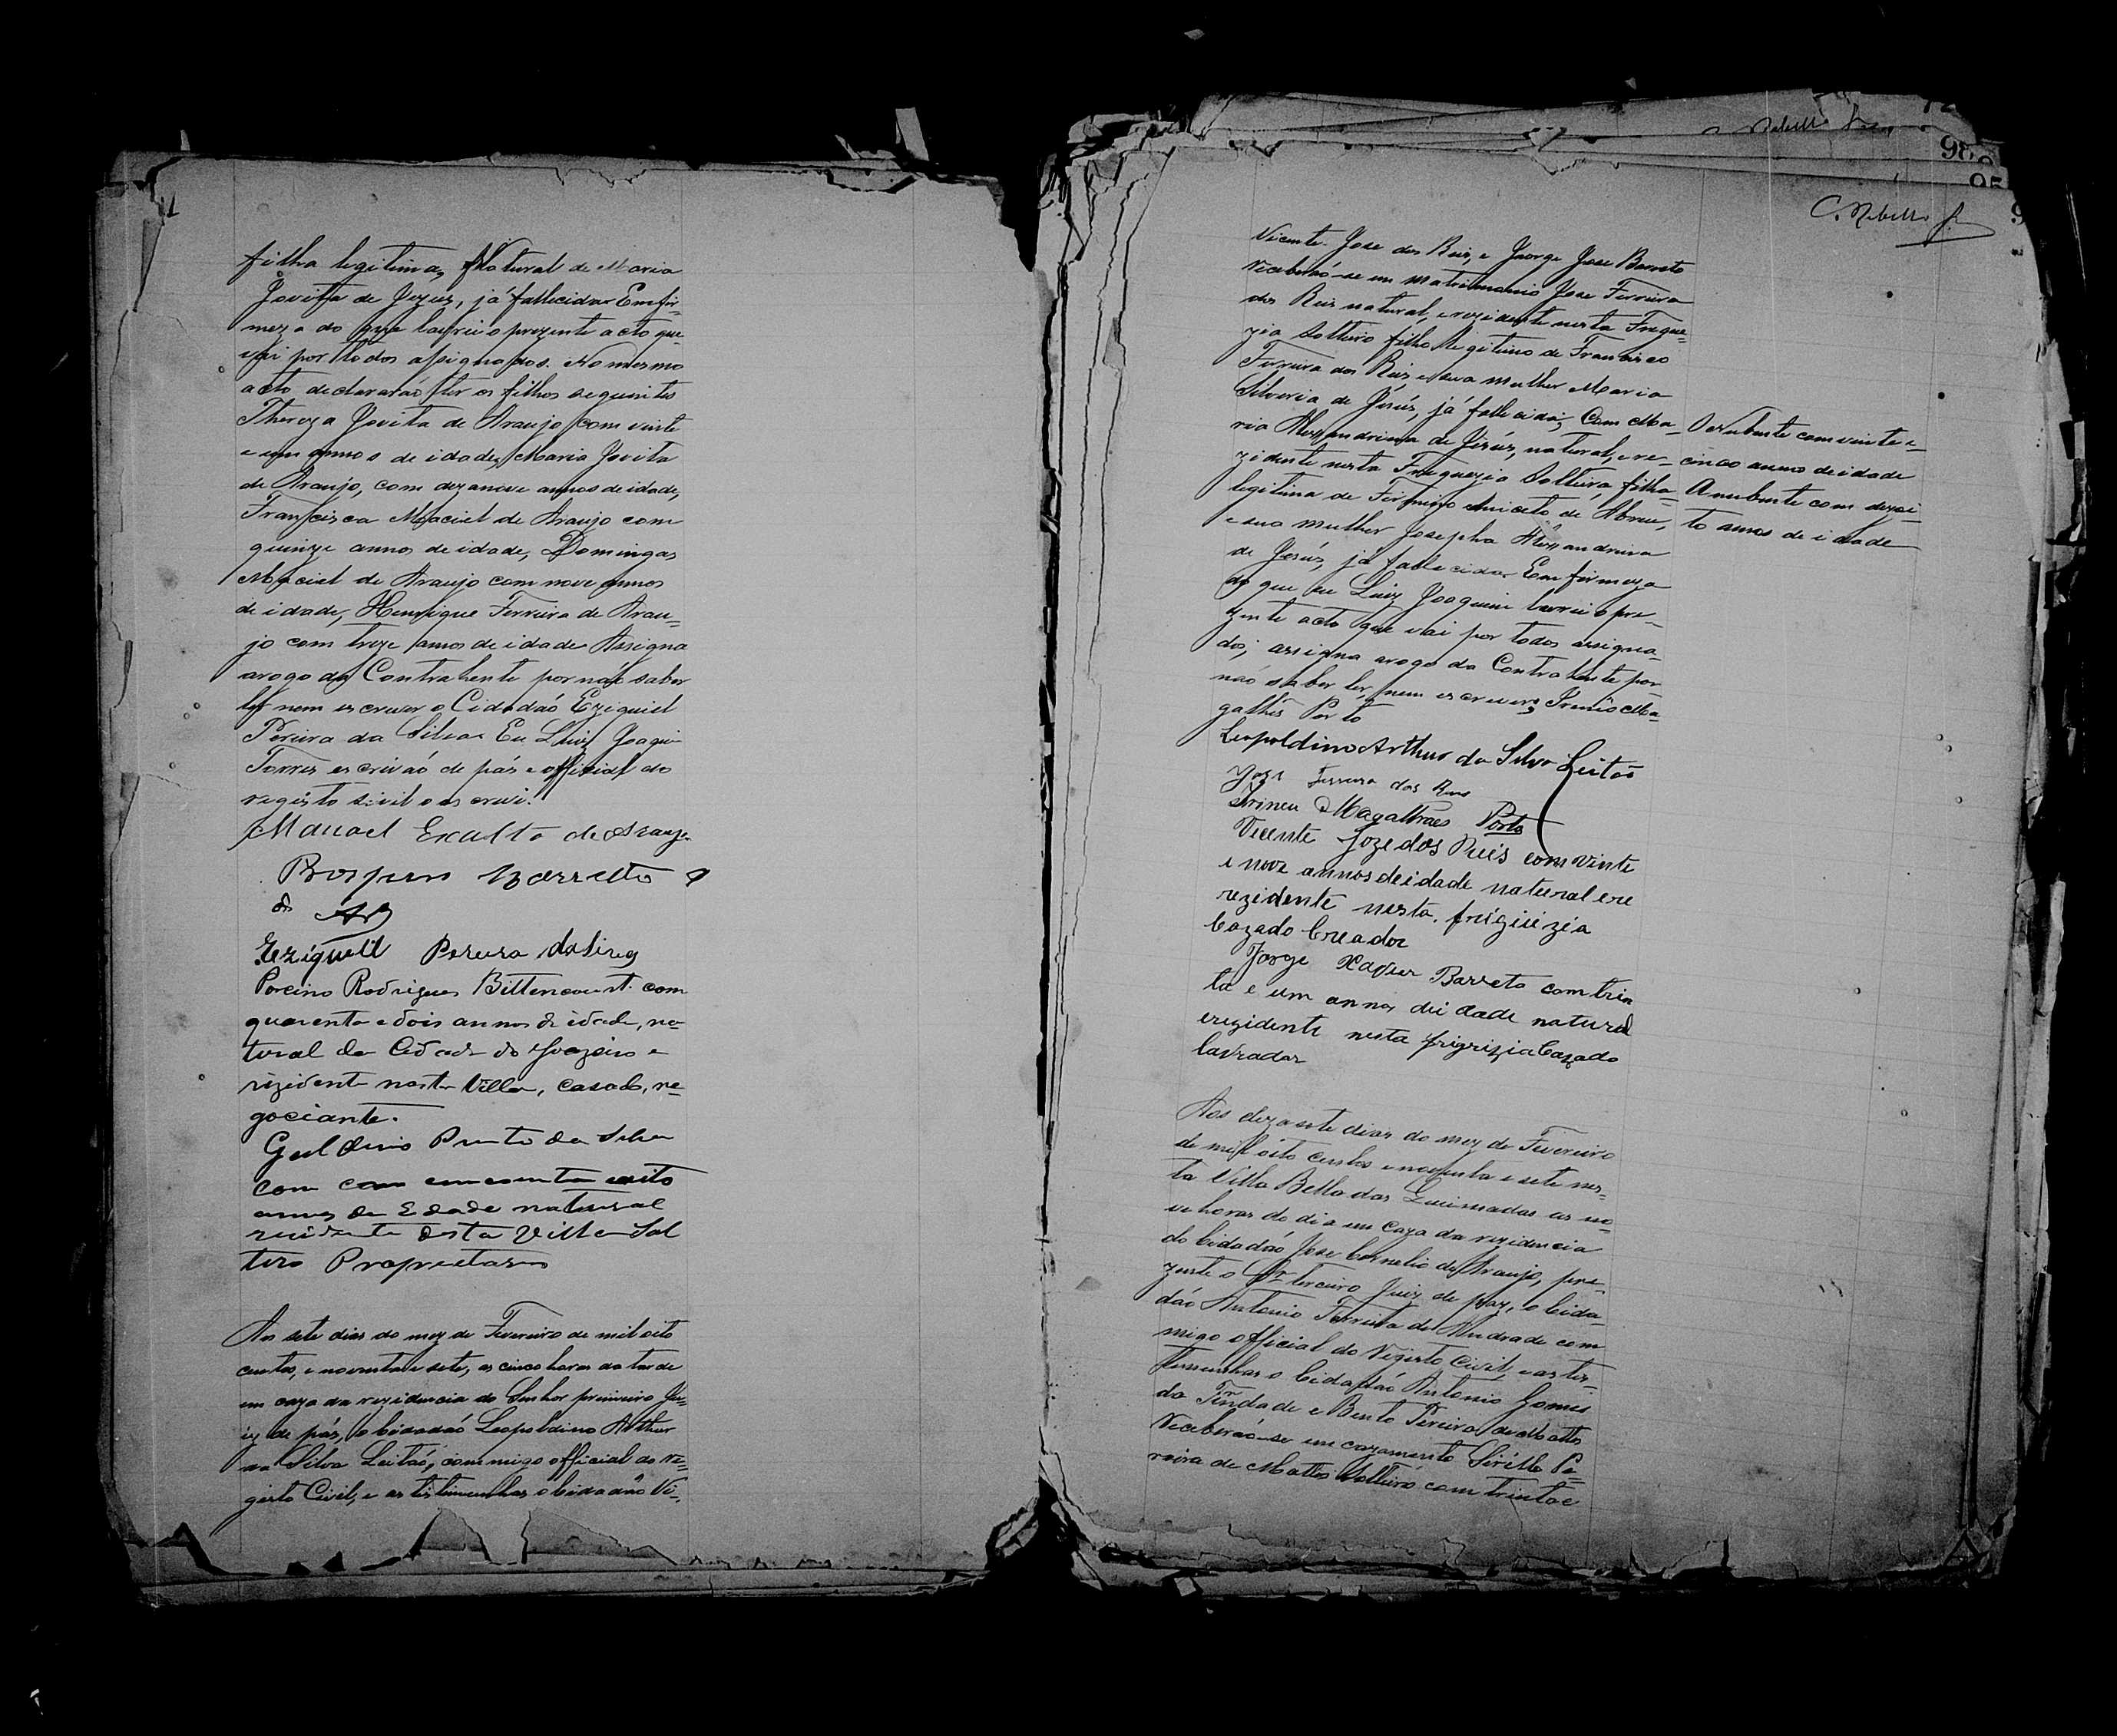 filha legitima, Natural de Maria
Jovita de Jezus, já fallecida Em fir-
meza do que lavrei o prezente acto que
vai por todos assignados. No mesmo
acto declararaó ter os filhos seguintes
Thereza Jovita de Araujo com vinte
e um annos de idade, Maria Jovita
de Araujo, com dezanove annos de idade,
Francisca Maciel de Araujo com
quinze annos de idade, Domingas
Maciel de Araujo com nove annos
de idade, Henrique Ferreira de Arau-
jo com treze annos de idade Assigna
arogo da Contrahente por naó saber
ler nem escrever o Cidadaó Eziquiel
Pereira da Silva Eu Luiz Joaquim
Torres escrivaó de pás e official do
registo sivil o escrevi.
Manoel Exalto de Araujo
Prospero Barretto
de
Eziquell Pereira da Sirva
Porcino Rodrigues Bittencourt com
quarenta e dois annos de idade, na-
tural da Cidade do Joazeiro e
rizidente nesta Villa, casado, ne-
gociante.
Galdino Pinto da Silva
com cincoenta eoito
annos de Edade natural
rezidente desta Villa Sol
teiro Proprietario
Aos sete dias do mez de Fevereiro de mil oito
centos, e noventa e sete, as cinco horas da tarde
em caza da rezidencia do Senhor primeiro Ju-
iz de pás, o cidadaó Leopoldino Arthur
da Silva Leitaó, commigo official do re-
gisto Civil, e as tistimunhas o cidadaó Vi-
C. Rebello Jr
98
95
Vicente Jose dos Reis, e Jorge Jose Barreto
Receberaó-se em matrimonio Jose Ferreira
dos Reis natural, e rezidente nesta Fregue-
zia Solteiro filho legitimo de Francisco
Ferreira dos Reis e sua mulher Maria
Silveria de Jesús, já fallecida; Com Ma-
ria Alexandrina de Jesús, natural, e re-
zidente nesta Freguezia Solteira, filha
legitima de Firmino Aniceto de Abreu,
e sua mulher Josepha Alexandrina
de Jesús, já fallecida Em firmeza
do que eu Luiz Joaquim lavrei o pre-
zente acto que vai por todos assigna-
dos, assigna arogo da Contrahente por
naó saber ler, nem escrever, Irenio Ma-
galhes Porto
O nubente com vinte e
cinco annos de idade
A nubente com dezoi-
to annos de idade
Leopoldino Arthur da Silva Leitão
Joze Ferreira dos Reis
Irineu Magalhaes Porto
Vicente Joze dos Reis com vinte
e nove annos de idade natural e re
rezidente nesta friguizia
Cazado Creador
Jorge Xavier Barreto com trin
ta e um annos dei dade natural
erezidente nesta frigrizia Cazado
lavrador
Aos dezasete dias do mez de Fevereiro
de mil oito centos e noventa e sete nes-
ta Villa Bella das Queimadas as no-
ve horas do dia em Caza da rezidencia
do Cidadaó Jose Cornelio de Araujo, pre-
zente o Sr terceiro Juiz de paz, o Cida-
daó Antonio Ferreira de Andrade com
migo official do Registo Civil, e as tes-
temunhas o Cidadaó Antonio Gomes
da Trindade e Bento Pereira de Mattos
Receberaó-se em cazamento Sirillo Pe-
reira de Mattos Solteiro com trinta e